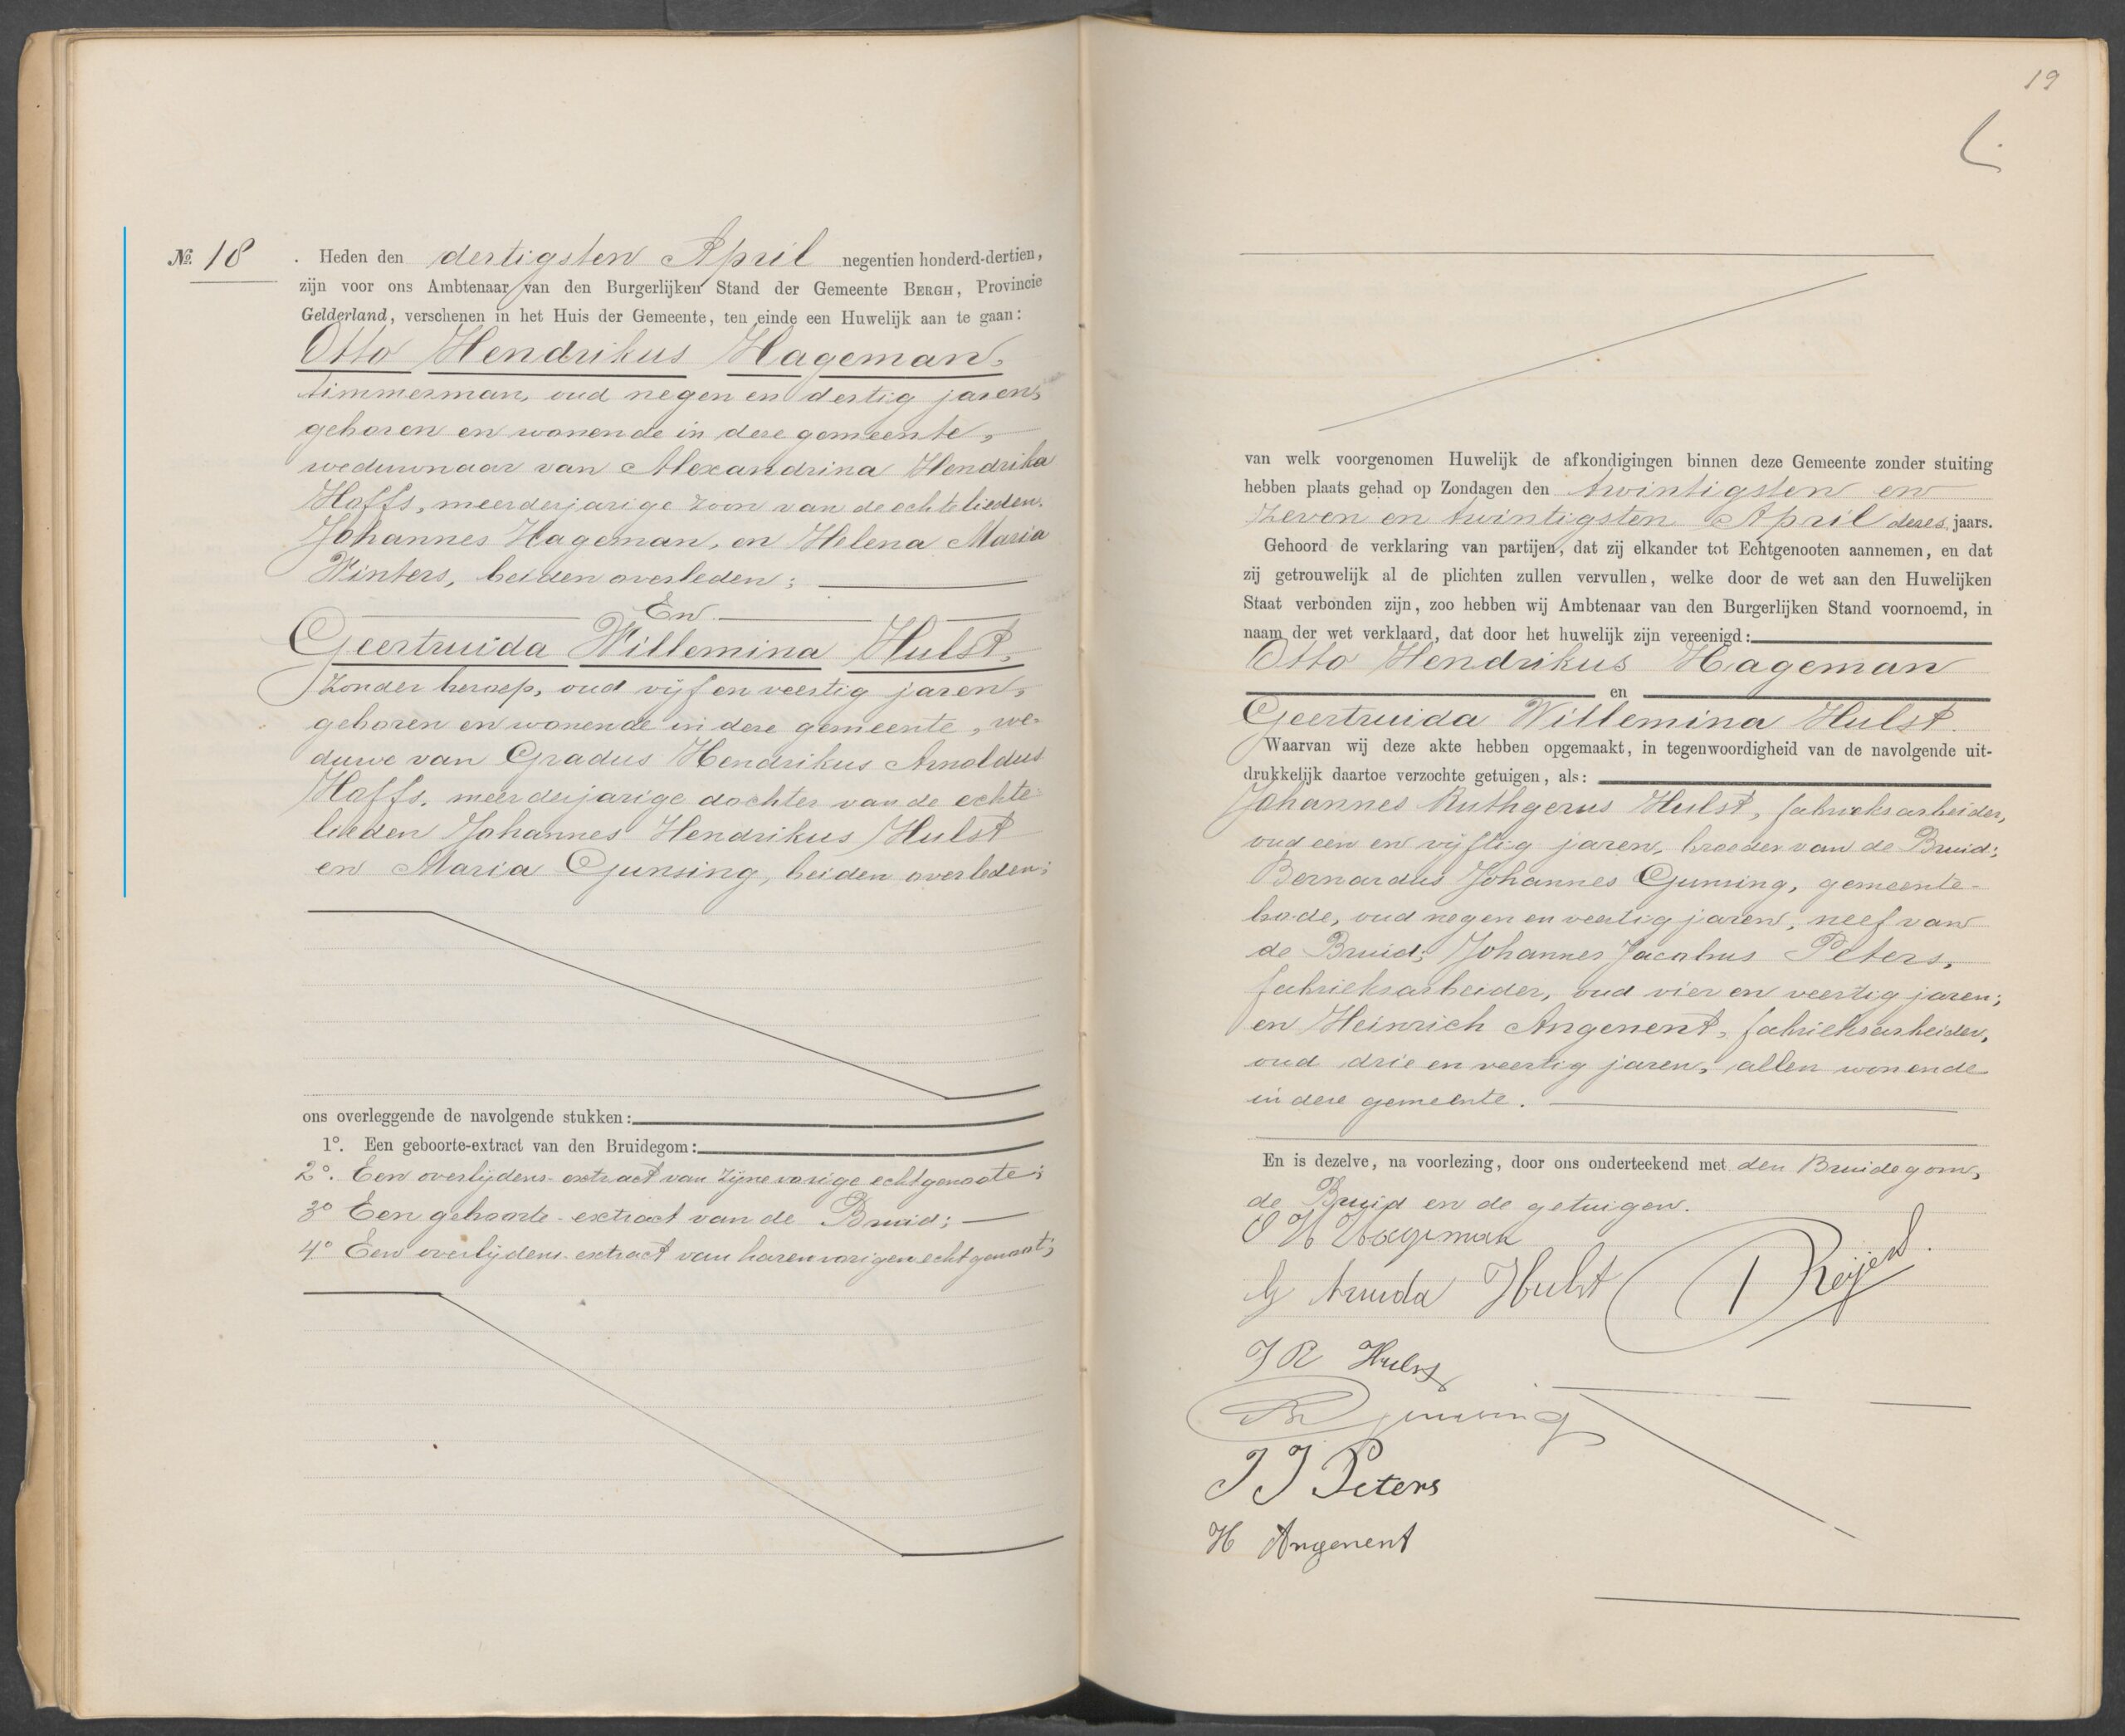 №. 18 . Heden den dertigsten April negentien honderd-dertien,
zijn voor ons Ambtenaar van den Burgerlijken Stand der Gemeente BERGH, Provincie
Gelderland, verschenen in het Huis der Gemeente, ten einde een Huwelijk aan te gaan:
Otto Hendrikus Hageman,
timmerman, oud negen en dertig jaren,
geboren en wonende in deze gemeente,
weduwnaar van Alexandrina Hendrika
Hoffs, meerderjarige zoon van de echtelieden.
Johannes Hageman, en Helena Maria
Winters, beiden overleden;
En
Geertruida Willemina Hulst,
zonder beroep, oud vijf en veertig jaren,
geboren en wonende in deze gemeente, we-
duwe van Gradus Hendrikus Arnoldus
Hoffs, meerderjarige dochter van de echte-
lieden Johannes Hendrikus Hulst
en Maria Gunsing, beiden overleden;
ons overleggende de navolgende stukken:
1°. Een geboorte-extract van den Bruidegom:
2°. Een overlijdens-extract van zijne vorige echtgenoote;
3° Een geboorte-extract van de Bruid;
4° Een overlijdens-extract van haren vorigen echtgenoot;
19
van welk voorgenomen Huwelijk de afkondigingen binnen deze Gemeente zonder stuiting
hebben plaats gehad op Zondagen den twintigsten en
zeven en twintigsten April dezes jaars.
Gehoord de verklaring van partijen, dat zij elkander tot Echtgenooten aannemen, en dat
zij getrouwelijk al de plichten zullen vervullen, welke door de wet aan den Huwelijken
Staat verbonden zijn, zoo hebben wij Ambtenaar van den Burgerlijken Stand voornoemd, in
naam der wet verklaard, dat door het huwelijk zijn vereenigd:
Otto Hendrikus Hageman
en
Geertruida Willemina Hulst.
Waarvan wij deze akte hebben opgemaakt, in tegenwoordigheid van de navolgende uit-
drukkelijk daartoe verzochte getuigen, als:
Johannes Ruthgerus Hulst, fabrieksarbeider,
oud een en vijftig jaren, broeder van de Bruid;
Bernardus Johannes Gunsing, gemeente-
bode, oud negen en veertig jaren, neef van
de Bruid; Johannes Jacobus Peters,
fabrieksarbeider, oud vier en veertig jaren;
en Heinrich Angenent, fabrieksarbeider,
oud drie en veertig jaren, allen wonende
in deze gemeente.
En is dezelve, na voorlezing, door ons onderteekend met den Bruidegom,
de Bruid en de getuigen.
O H Hageman
Hulst
J R Hulst
Gunsing
J J Peters
H Angenent